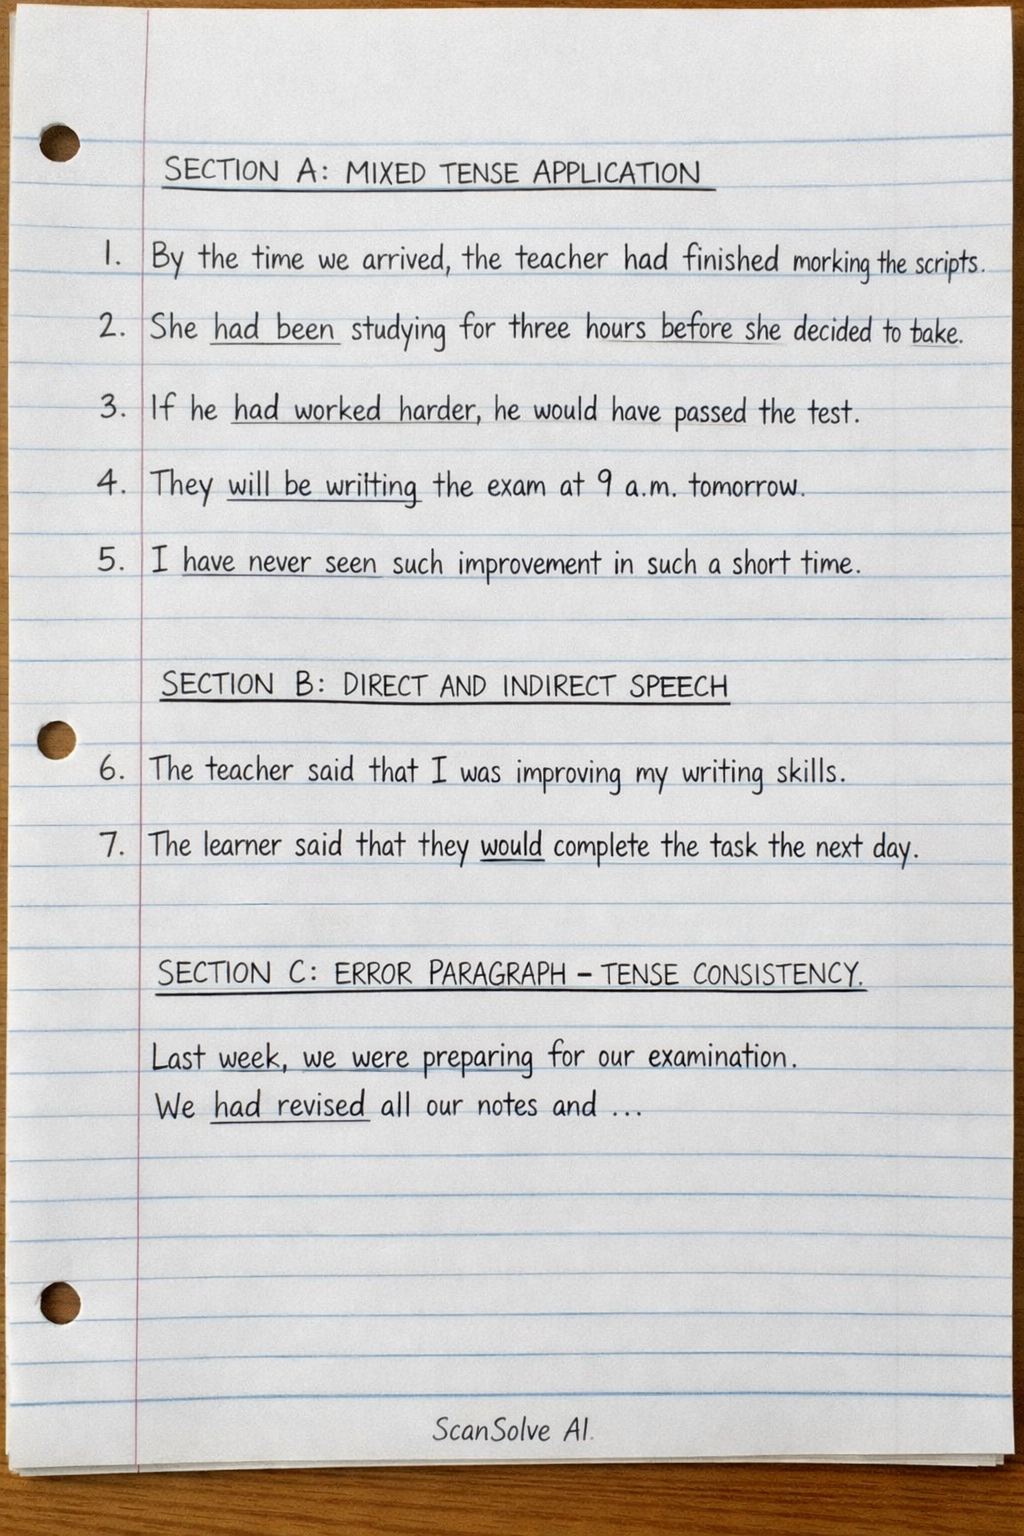 SECTION A: MIXED TENSE APPLICATION
1. By the time we arrived, the teacher had finished morking the scripts.
2. She had been studying for three hours before she decided to bake.
3. If he had worked harder, he would have passed the test.
4. They will be writting the exam at 9 a.m. tomorrow.
5. I have never seen such improvement in such a short time.
SECTION B: DIRECT AND INDIRECT SPEECH
6. The teacher said that I was improving my writing skills.
7. The learner said that they would complete the task the next day.
SECTION C: ERROR PARAGRAPH – TENSE CONSISTENCY.
Last week, we were preparing for our examination.
We had revised all our notes and ...
ScanSolve AI.